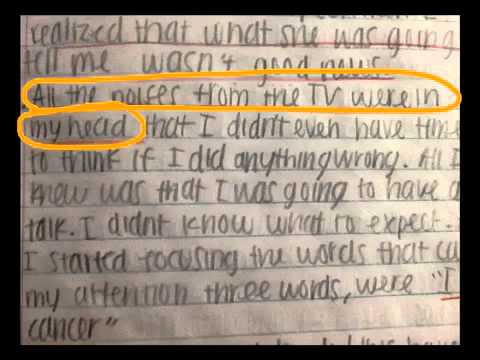 realized that what she was going
tell me wasn't good news.
All the noises from the TV were in
my head that I didn't even have time
to think if I did anything wrong. All I
knew was that I was going to have a
talk. I didnt know what to expect.
I started focusing the words that ca
my attention three words, were "I
cancer"